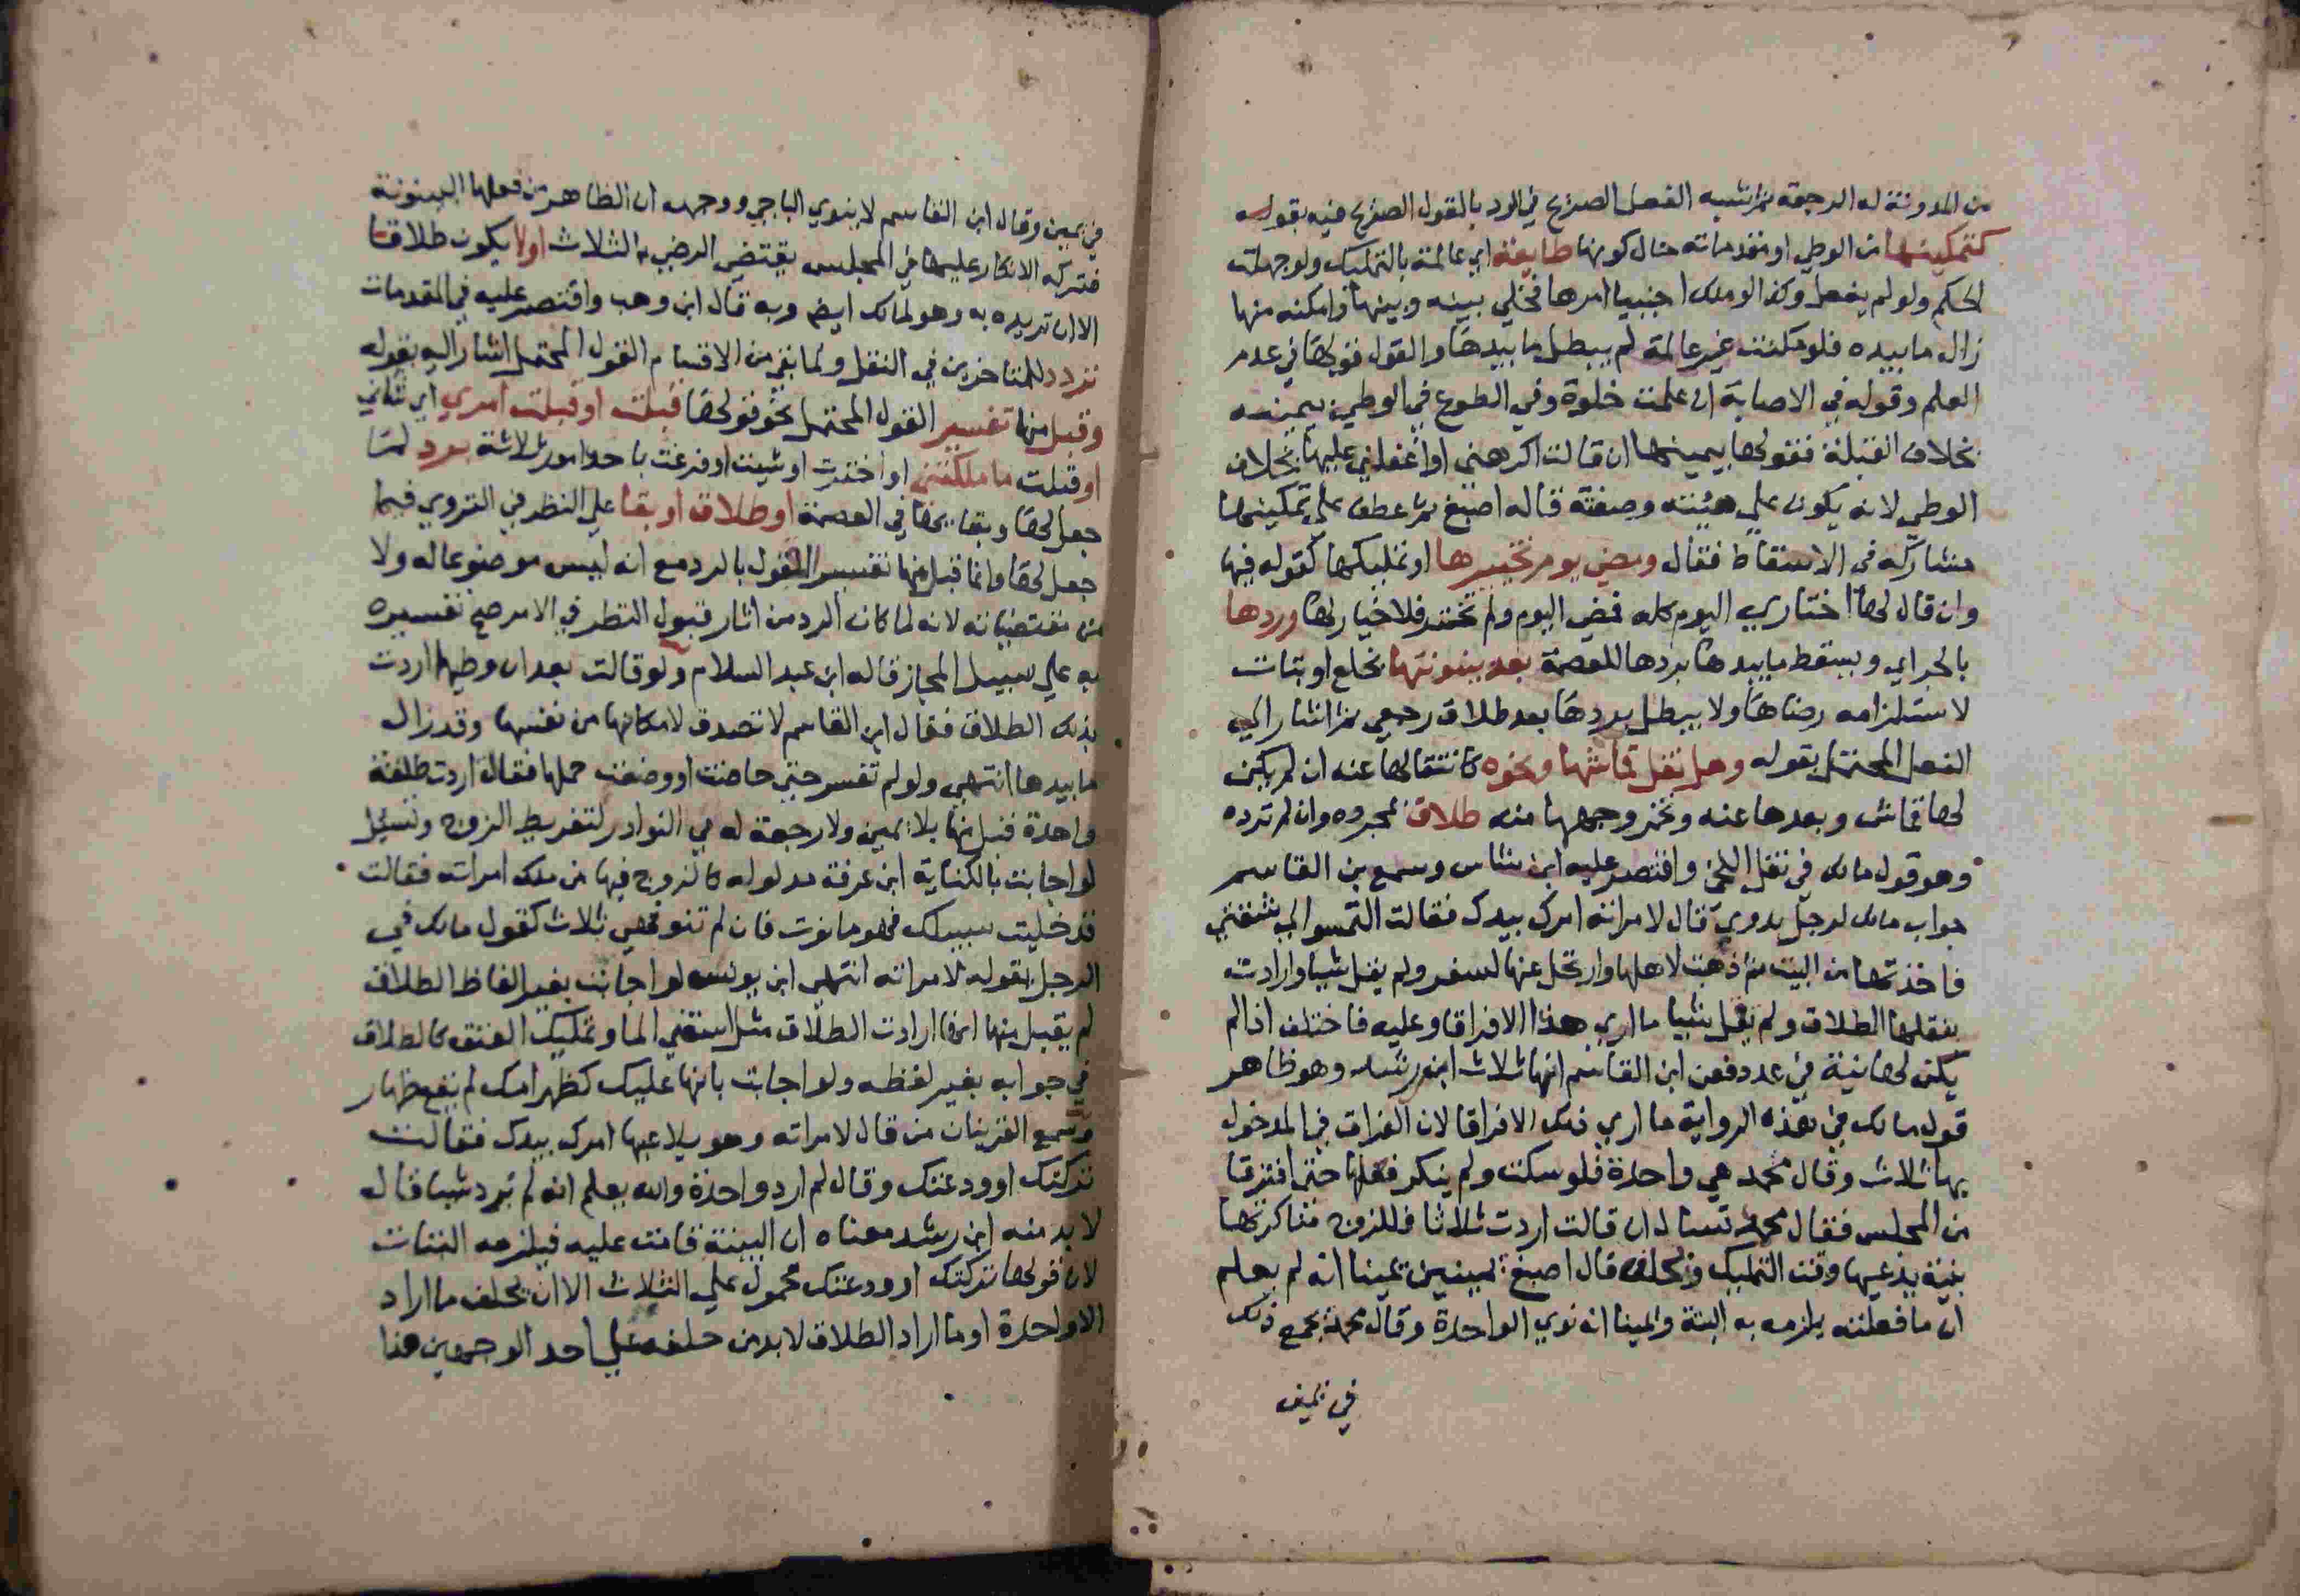 من المدونة له الرجعة ثم شبه الفعل الصريح في الرد بالقول الصريح فيه بقوله
كتمكينها من الوطي او مقدماته حال كونها طايعة اي عالمة بالتمليك ولو جهلت
الحكم ولو لم يفعل وكذا لو ملك اجنبيا امرها فخلي بينه وبينها وامكنه منها
زال ما بيده فلو مكنت غير عالمة لم يبطل ما بيدها والقول قولها في عدم
العلم وقوله في الاصابة ان علمت خلوة وفي الطوع في الوطي بيمينه
بخلاف القبلة فقولها بيمينها ان قالت اكرهني او اغفلني عليها بخلاف
الوطي لانه يكون علي هيئته وصفته قاله اصبغ ثم عطف علي تمكينها
مشاركه في الاسقاط فقال ومضي يوم تخييرها او تمليكها كقوله فيها
وان قال لها اختاري اليوم كله فمضي اليوم ولم تختر فلا خيار لها وردها
بالجر اي ويسقط ما بيدها بردها للعصمة بعد بينونتها بخلع او بتات
لاستلزامه رضاها ولا يبطل بردها بعد طلاق رجعي ثم اشار الي
الفعل المحتمل بقوله وهل نقل قماشها ونحوه كانتقالها عنه ان لم يكن
لها قماش وبعدها عنه وتخروجهها منه طلاق بمجرده وان لم ترده
وهو قول مالك في نقل اللخمي واقتصر عليه ابن شاس وسمع بن القاسم
جواب مالك لرجل بدوي قال لامراته امرك بيدك فقالت التمسوا لي شقتي
فاخذتها من البيت ثم ذهبت لاهلها وارتحل عنها لسفر ولم يقل شيا وارادت
بنقلها الطلاق ولم يقل شيا ما اري هذا الا فراقا وعليه فاختلف اذا لم
يكن لها نية في عدد فعن ابن القاسم انها ثلاث ابن رشد وهو ظاهر
قول مالك في هذه الرواية ما اري ذلك الا فراقا لان الفراق في المدخول
بها ثلاث وقال محمد هي واحدة فلو سكت ولم ينكر فعلها حتي افترقا
من المجلس فقال محمد تسال ان قالت اردت ثلاثا فللزوج مناكرتها
بنية يدعيها وقت التمليك ويحلف قال اصبغ يمينين يمينا انه لم يعلم
ان ما فعلته يلزمه به البتة ويمينا انه نوي الواحدة وقال محمد يجمع ذلك
في يمين
في يمين وقال ابن القاسم لا ينوي الباجي ووجهه ان الظاهر من فعلها البينونة
فتركه الانكار عليها في المجلس يقتضي الرضي بالثلاث اولا يكون طلاقا
الا ان تريده به وهو لمالك ايضا وبه قال ابن وهب واقتصر عليه في المقدمات
تردد للمتاخرين في النقل ولما بقي من الاقسام القول المحتمل اشار اليه بقوله
وقبل منها تفسير القول المحتمل نحو قولها قبلت او قبلت امري اي شاني
او قبلت ما ملكتني او اخترت او شيت او فرغت باحد امور ثلاثة برد لما
جعل لها وبقايها في العصمة او طلاق او بقا علي النظر في التروي فيما
جعل لها وانما قبل منها تفسير القول بالرد مع انه ليس موضوعا له ولا
من مقتضياته لانه لما كان الرد من اثار قبول النظر في الامر صح تفسيره
به علي سبيل المجاز قاله ابن عبد السلام ولو قالت بعد ان وطيها اردت
بذلك الطلاق فقال ابن القاسم لا تصدق لامكانها من نفسها وقد زال
ما بيدها انتهي ولو لم تفسر حتي حاضت او وضعت حملها فقال اردت طلقة
واحدة قبل منها بلا يمين ولا رجعة له في النوادر لتفريط الزوج وتسيل
لو اجابت بالكناية ابن عرفة مدلوله كالزوج فيها من ملك امراته فقالت
قد خليت سبيلك فهو ما نوت فان لم تنو فهي ثلاث كقول مالك في
الرجل يقوله لامراته انتهي ابن يونس لو اجابت بغير الفاظ الطلاق
لم يقبل منها انها ارادت الطلاق مثل اسقني الما وتمليك العتق كالطلاق
في جوابه بغير لفظه ولو اجابت بانها عليك كظهر امك لم يقع ظهار
وسمع القرينان من قال لامراته وهو يلاعبها امرك بيدك فقالت
تركتك او ودعتك وقال لم ارد واحدة والله يعلم انه لم يرد شيا قال
لا بد منه ابن رشد معناه ان البينة قامت عليه فيلزمه البتات
لان قولها تركتك او ودعتك محمول علي الثلاث الا ان يحلف ما اراد
الا واحدة او ما اراد الطلاق لا بد من حلفه علي احد الوجهين هنا